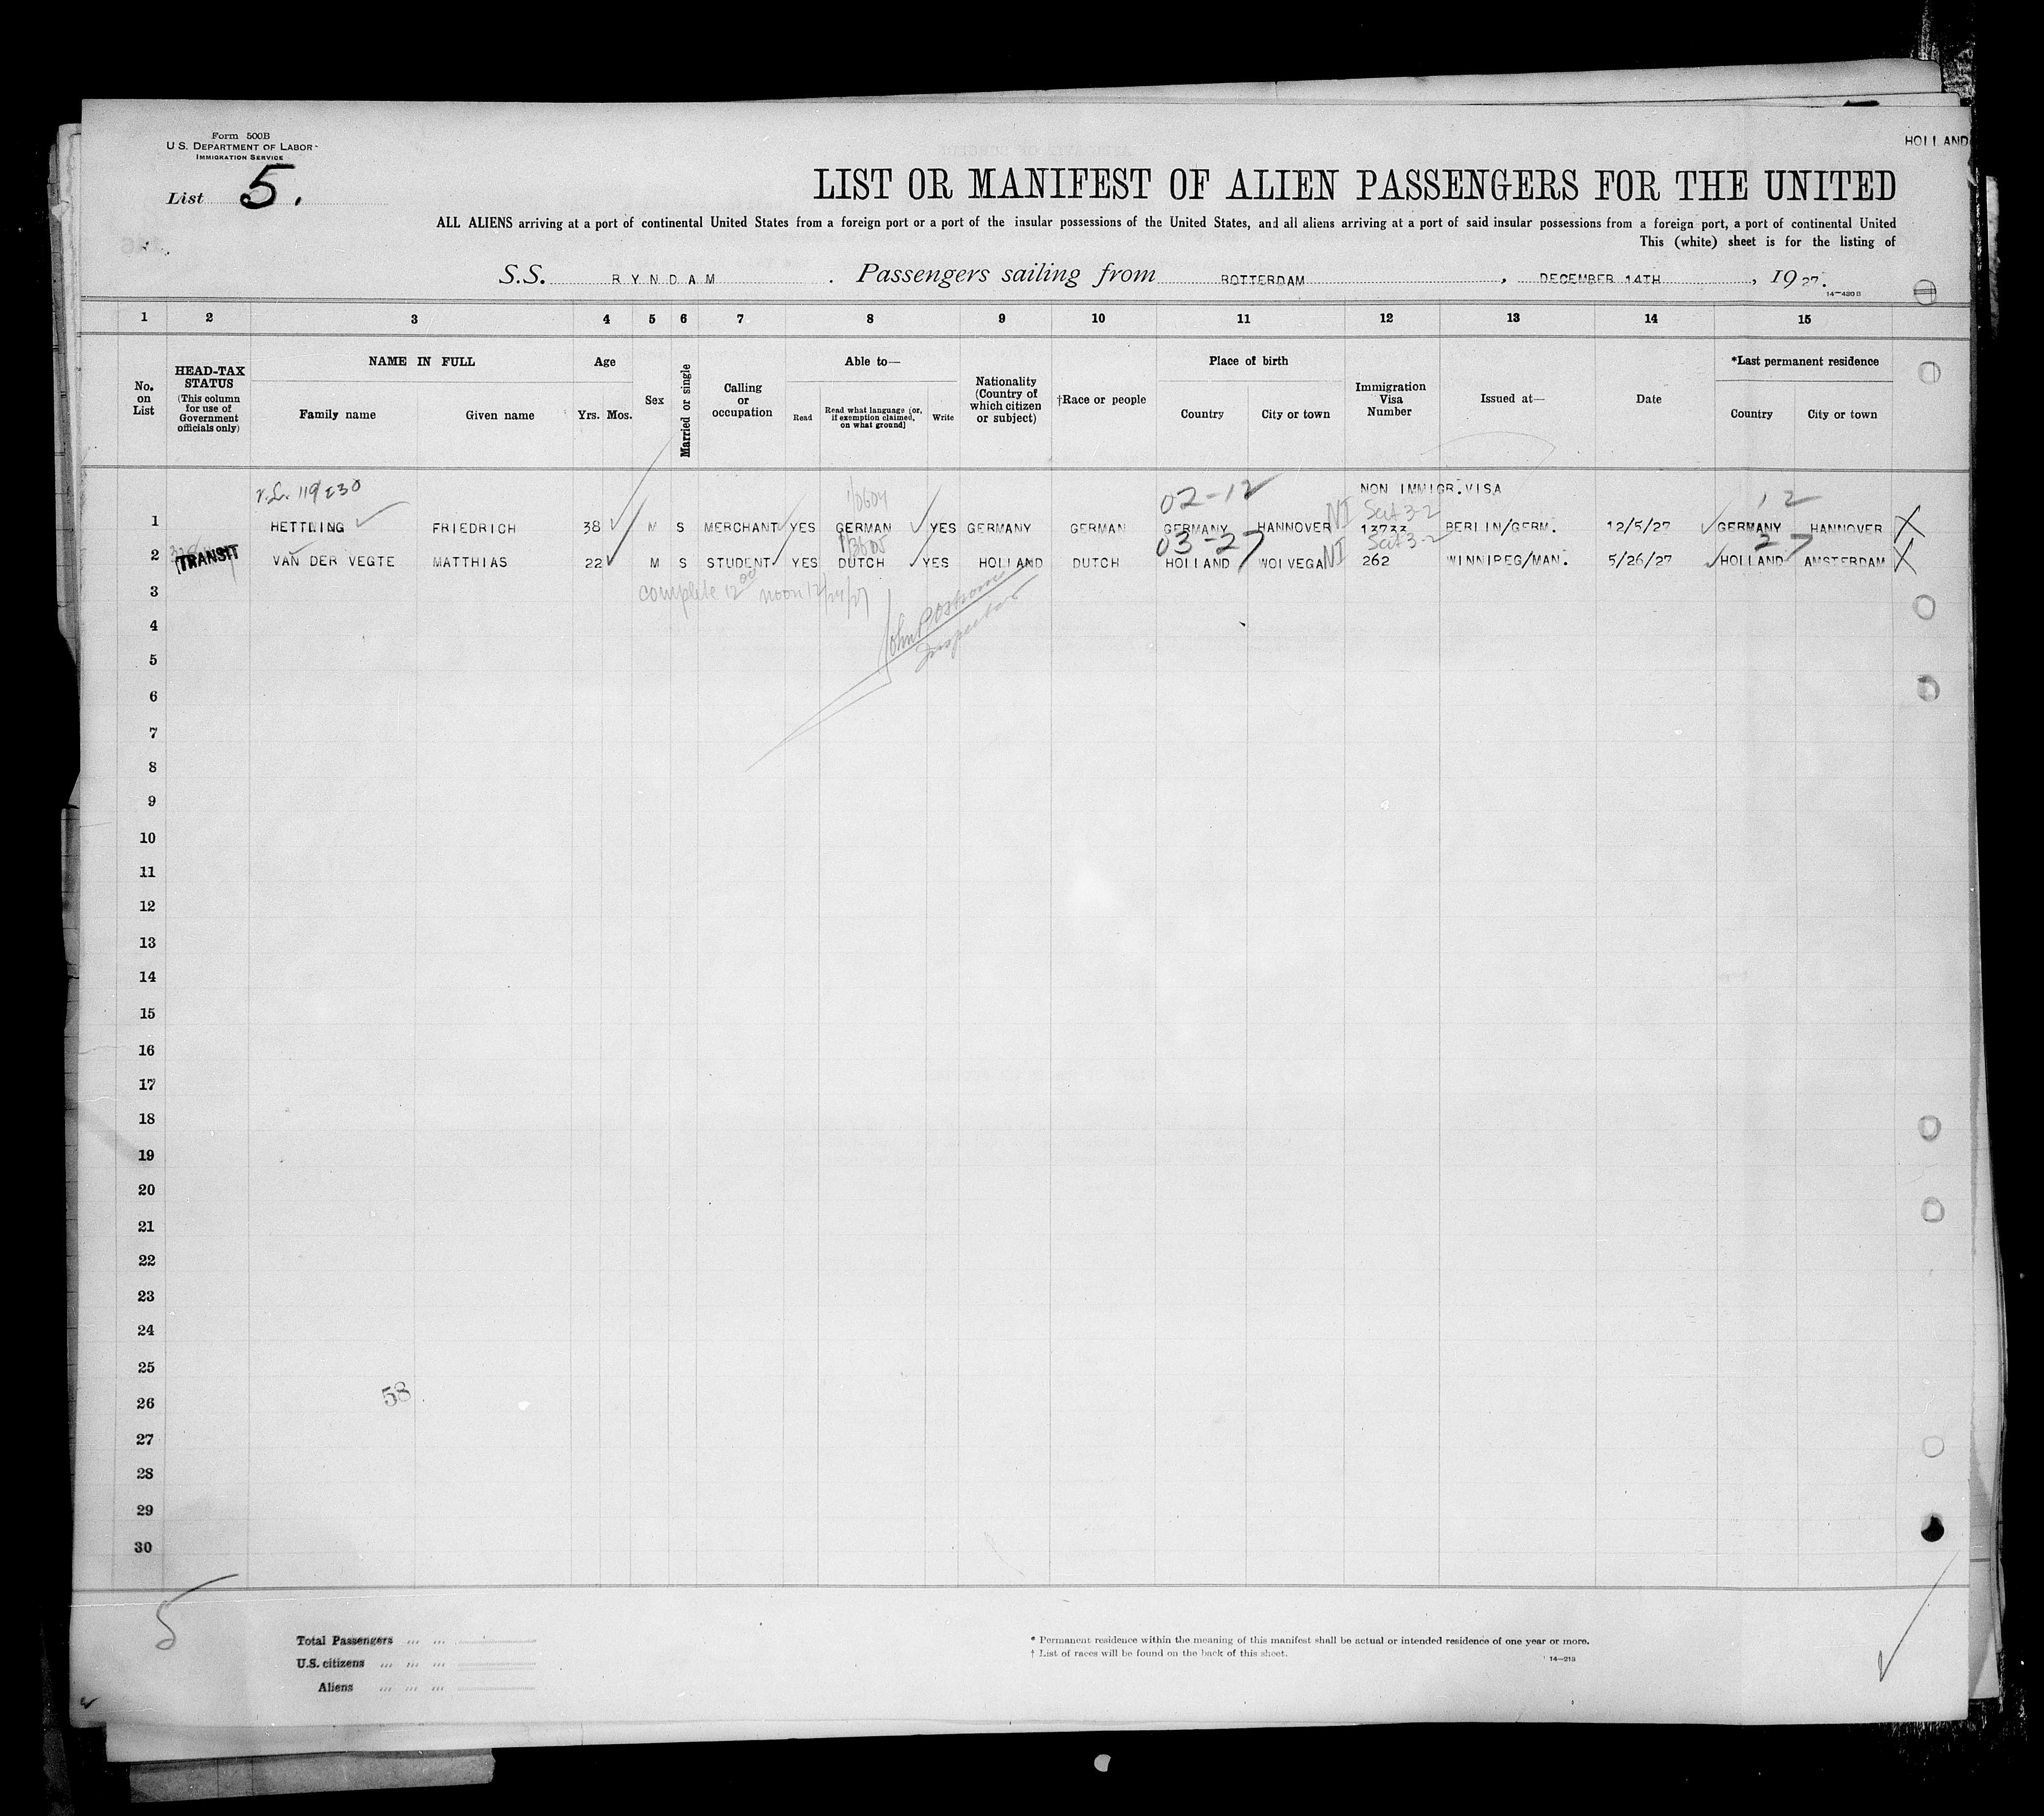 Form 500B
U. S. DEPARTMENT OF LABOR
IMMIGRATION SERVICE
HOLLAND
List 5.
LIST OR MANIFEST OF ALIEN PASSENGERS FOR THE UNITED
ALL ALIENS arriving at a port of continental United States from a foreign port or a port of the insular possessions of the United States, and all aliens arriving at a port of said insular possessions from a foreign port, a port of continental United
This (white) sheet is for the listing of
S.S. RYNDAM . Passengers sailing from ROTTERDAM , DECEMBER 14TH , 19 27.
14—430 B
1 2 3 4 5 6 7 8 9 10 11 12 13 14 15
No. on List
HEAD-TAX STATUS (This column for use of Government officials only)
NAME IN FULL
Family name Given name
Age
Yrs. Mos.
Sex
Married or single
Calling or occupation
Able to—
Read Read what language [or, if exemption claimed, on what ground] Write
Nationality (Country of which citizen or subject)
†Race or people
Place of birth
Country City or town
Immigration Visa Number
Issued at—
Date
*Last permanent residence
Country City or town
02-12 NON IMMIGR.VISA 12
1 HETTLING FRIEDRICH 38 M S MERCHANT YES GERMAN YES GERMANY GERMAN GERMANY HANNOVER NI 13733 BERLIN/GERM. 12/5/27 GERMANY HANNOVER X
03-27 27
2 TRANSIT VAN DER VEGTE MATTHIAS 22 M S STUDENT YES DUTCH YES HOLLAND DUTCH HOLLAND WOLVEGA NI 262 WINNIPEG/MAN. 5/26/27 HOLLAND AMSTERDAM X
3 complete 12 00 noon 12/24/27
Inspector
4
5
6
7
8
9
10
11
12
13
14
15
16
17
18
19
20
21
22
23
24
25
26 58
27
28
29
30
5
Total Passengers
U.S. citizens
Aliens
* Permanent residence within the meaning of this manifest shall be actual or intended residence of one year or more.
† List of races will be found on the back of this sheet.
14—213